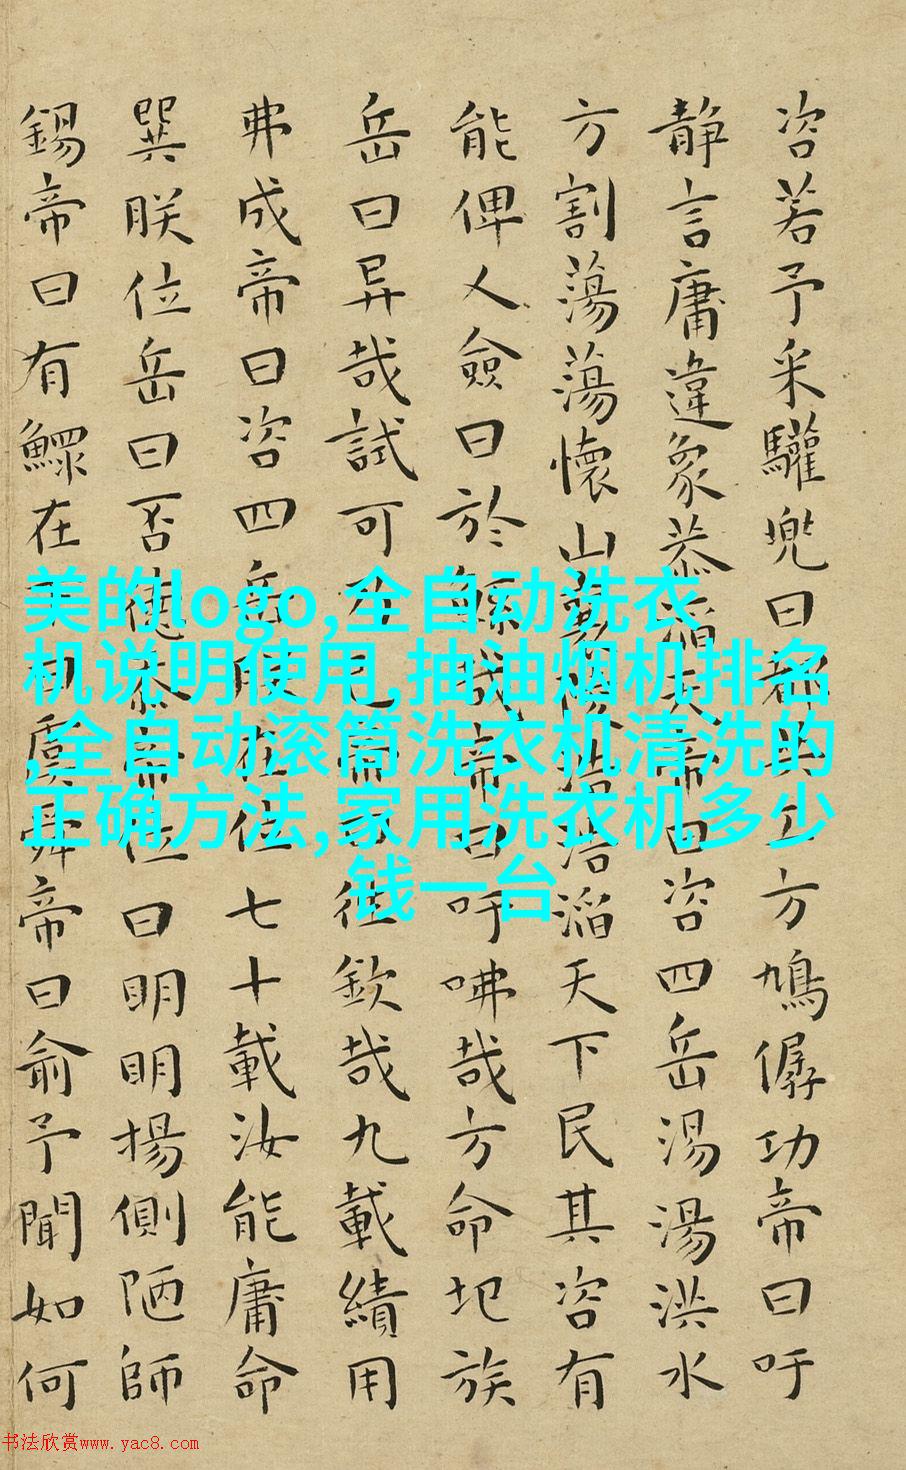 咨若予采驩兜曰都共工方鳩僝功帝曰吁
静言庸違象恭滔天帝曰咨四岳湯湯洪水
方割蕩蕩懷山襄陵浩浩滔天下民其咨有
能俾乂僉曰於鯀哉帝曰吁咈哉方命圮族
岳曰异哉試可乃已帝曰往欽哉九載績用
弗成帝曰咨四岳朕在位七十載汝能庸命
巽朕位岳曰否德忝帝位曰明明揚側陋師
錫帝曰有鰥在下曰虞舜帝曰俞予聞如何
美的logo,全自动洗衣
机说明使用,抽油烟机排名
,全自动滚筒洗衣机清洗的
正确方法,家用洗衣机多少
钱一台
书法欣赏www.yac8.com